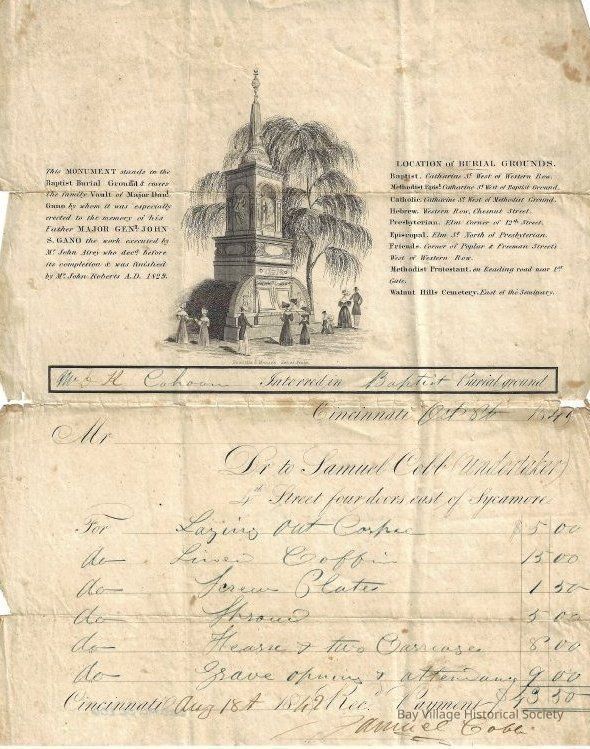 This MONUMENT stands in the
Baptist Burial Ground & covers
the family Vault of Major Danl.
Gano by whom it was especially
erected to the memory of his
Father MAJOR GENL. JOHN
S. GANO the work executed by
Mr. John Airey who decd. before
its completion & was finished
by Mr. John Roberts A.D. 1829.
LOCATION OF BURIAL GROUNDS.
Baptist. Catharine St. West of Western Row.
Methodist Episl. Catharine St. West of Baptist Ground.
Catholic Catharine St. West of Methodist Ground.
Hebrew. Western Row, Chesnut Street.
Presbyterian. Elm Corner of 12th Street.
Episcopal. Elm St. North of Presbyterian.
Friends. Corner of Poplar & Freeman Street
West of Western Row.
Methodist Protestant. on Reading road near 1st
Gate.
Walnut Hills Cemetery. East of the Seminary.
H Cahoon Interred in Baptist Burial ground
Cincinnati Oct 8th
Mr
Dr to Samuel Cobb (undertaker)
4th Street four doors east of Sycamore
For Laying out Corpse $ 5 00
do Coffin 15 00
do Screws Plates 1 50
do Shroud 5 00
do Hearse & two Carriages 8 00
do Grave opening & attendance 9 00
Cincinnati Aug 18th 1842 Recd. Payment $ 43 50
Samuel Cobb
Bay Village Historical Society